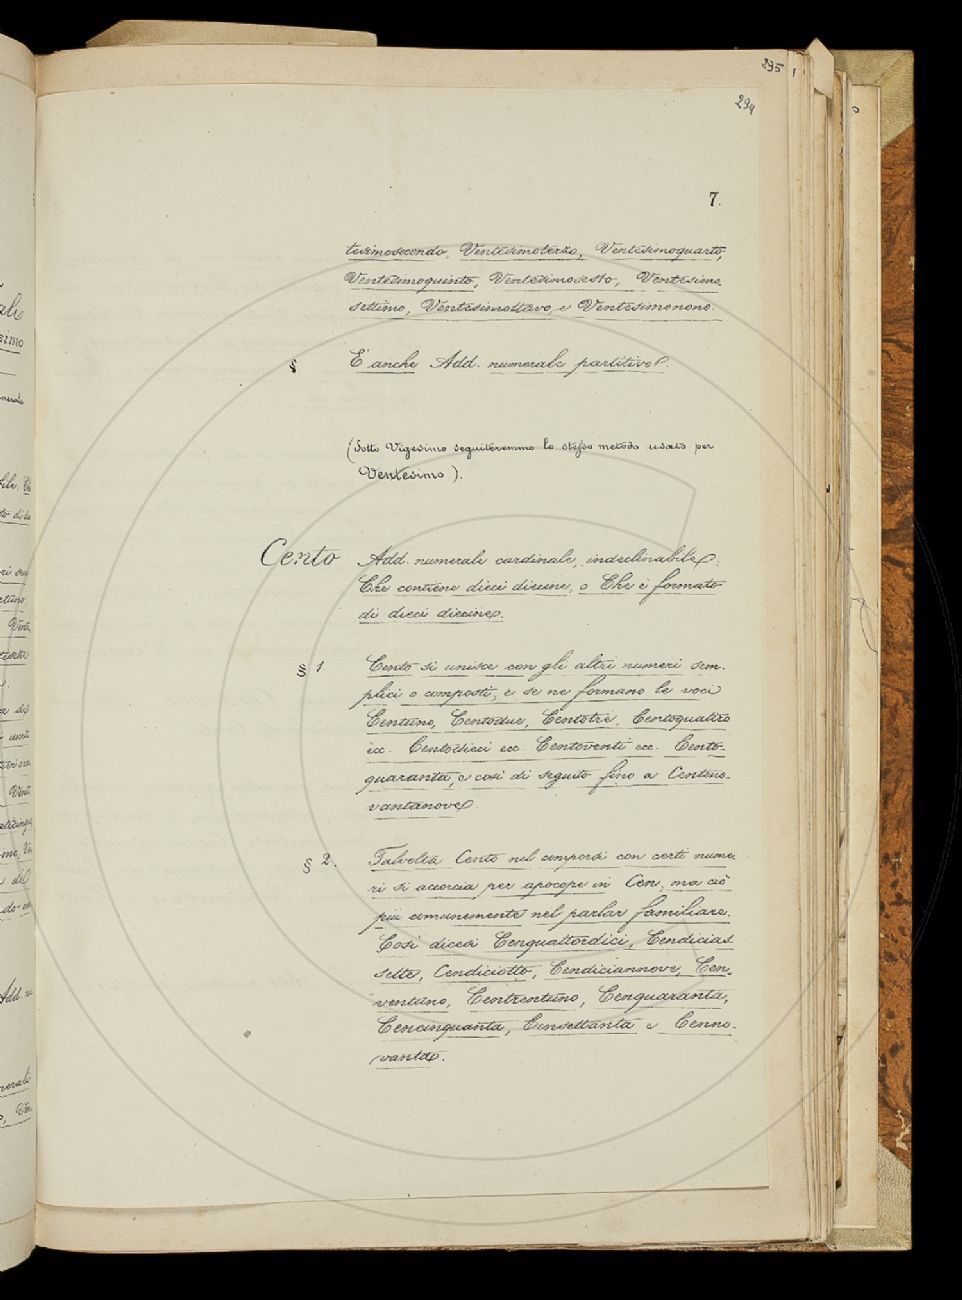 295
294
7.
tesimosecondo, Ventesimoterzo, Ventesimoquarto,
Ventesimoquinto, Ventesimosesto, Ventesimo
settimo, Ventesimottavo e Ventesimonono.
§ E' anche Add. numerale partitivo.
(Sotto Vigesimo seguiteremmo lo stesso metodo usato per
Ventesimo).
Cento Add. numerale cardinale, indeclinabile;
Che contiene dieci diecine, o Che è formato
di dieci diecine.
§ 1 Cento si unisce con gli altri numeri sem-
plici o composti, e se ne formano le voci
Centuno, Centodue, Centotrè, Centoquattro
ecc. Centodieci ecc. Centoventi ecc. Cento-
quaranta, e così di seguito fino a Centono-
vantanove.
§ 2. Talvolta Cento nel comporsi con certi nume-
ri si accorcia per apocope in Cen, ma ciò
più comunemente nel parlar familiare.
Così dicesi Cenquattordici, Cendicias
sette, Cendiciotto, Cendiciannove, Cen-
ventuno, Centrentuno, Cenquaranta,
Cencinquanta, Censettanta e Cenno-
vanta.